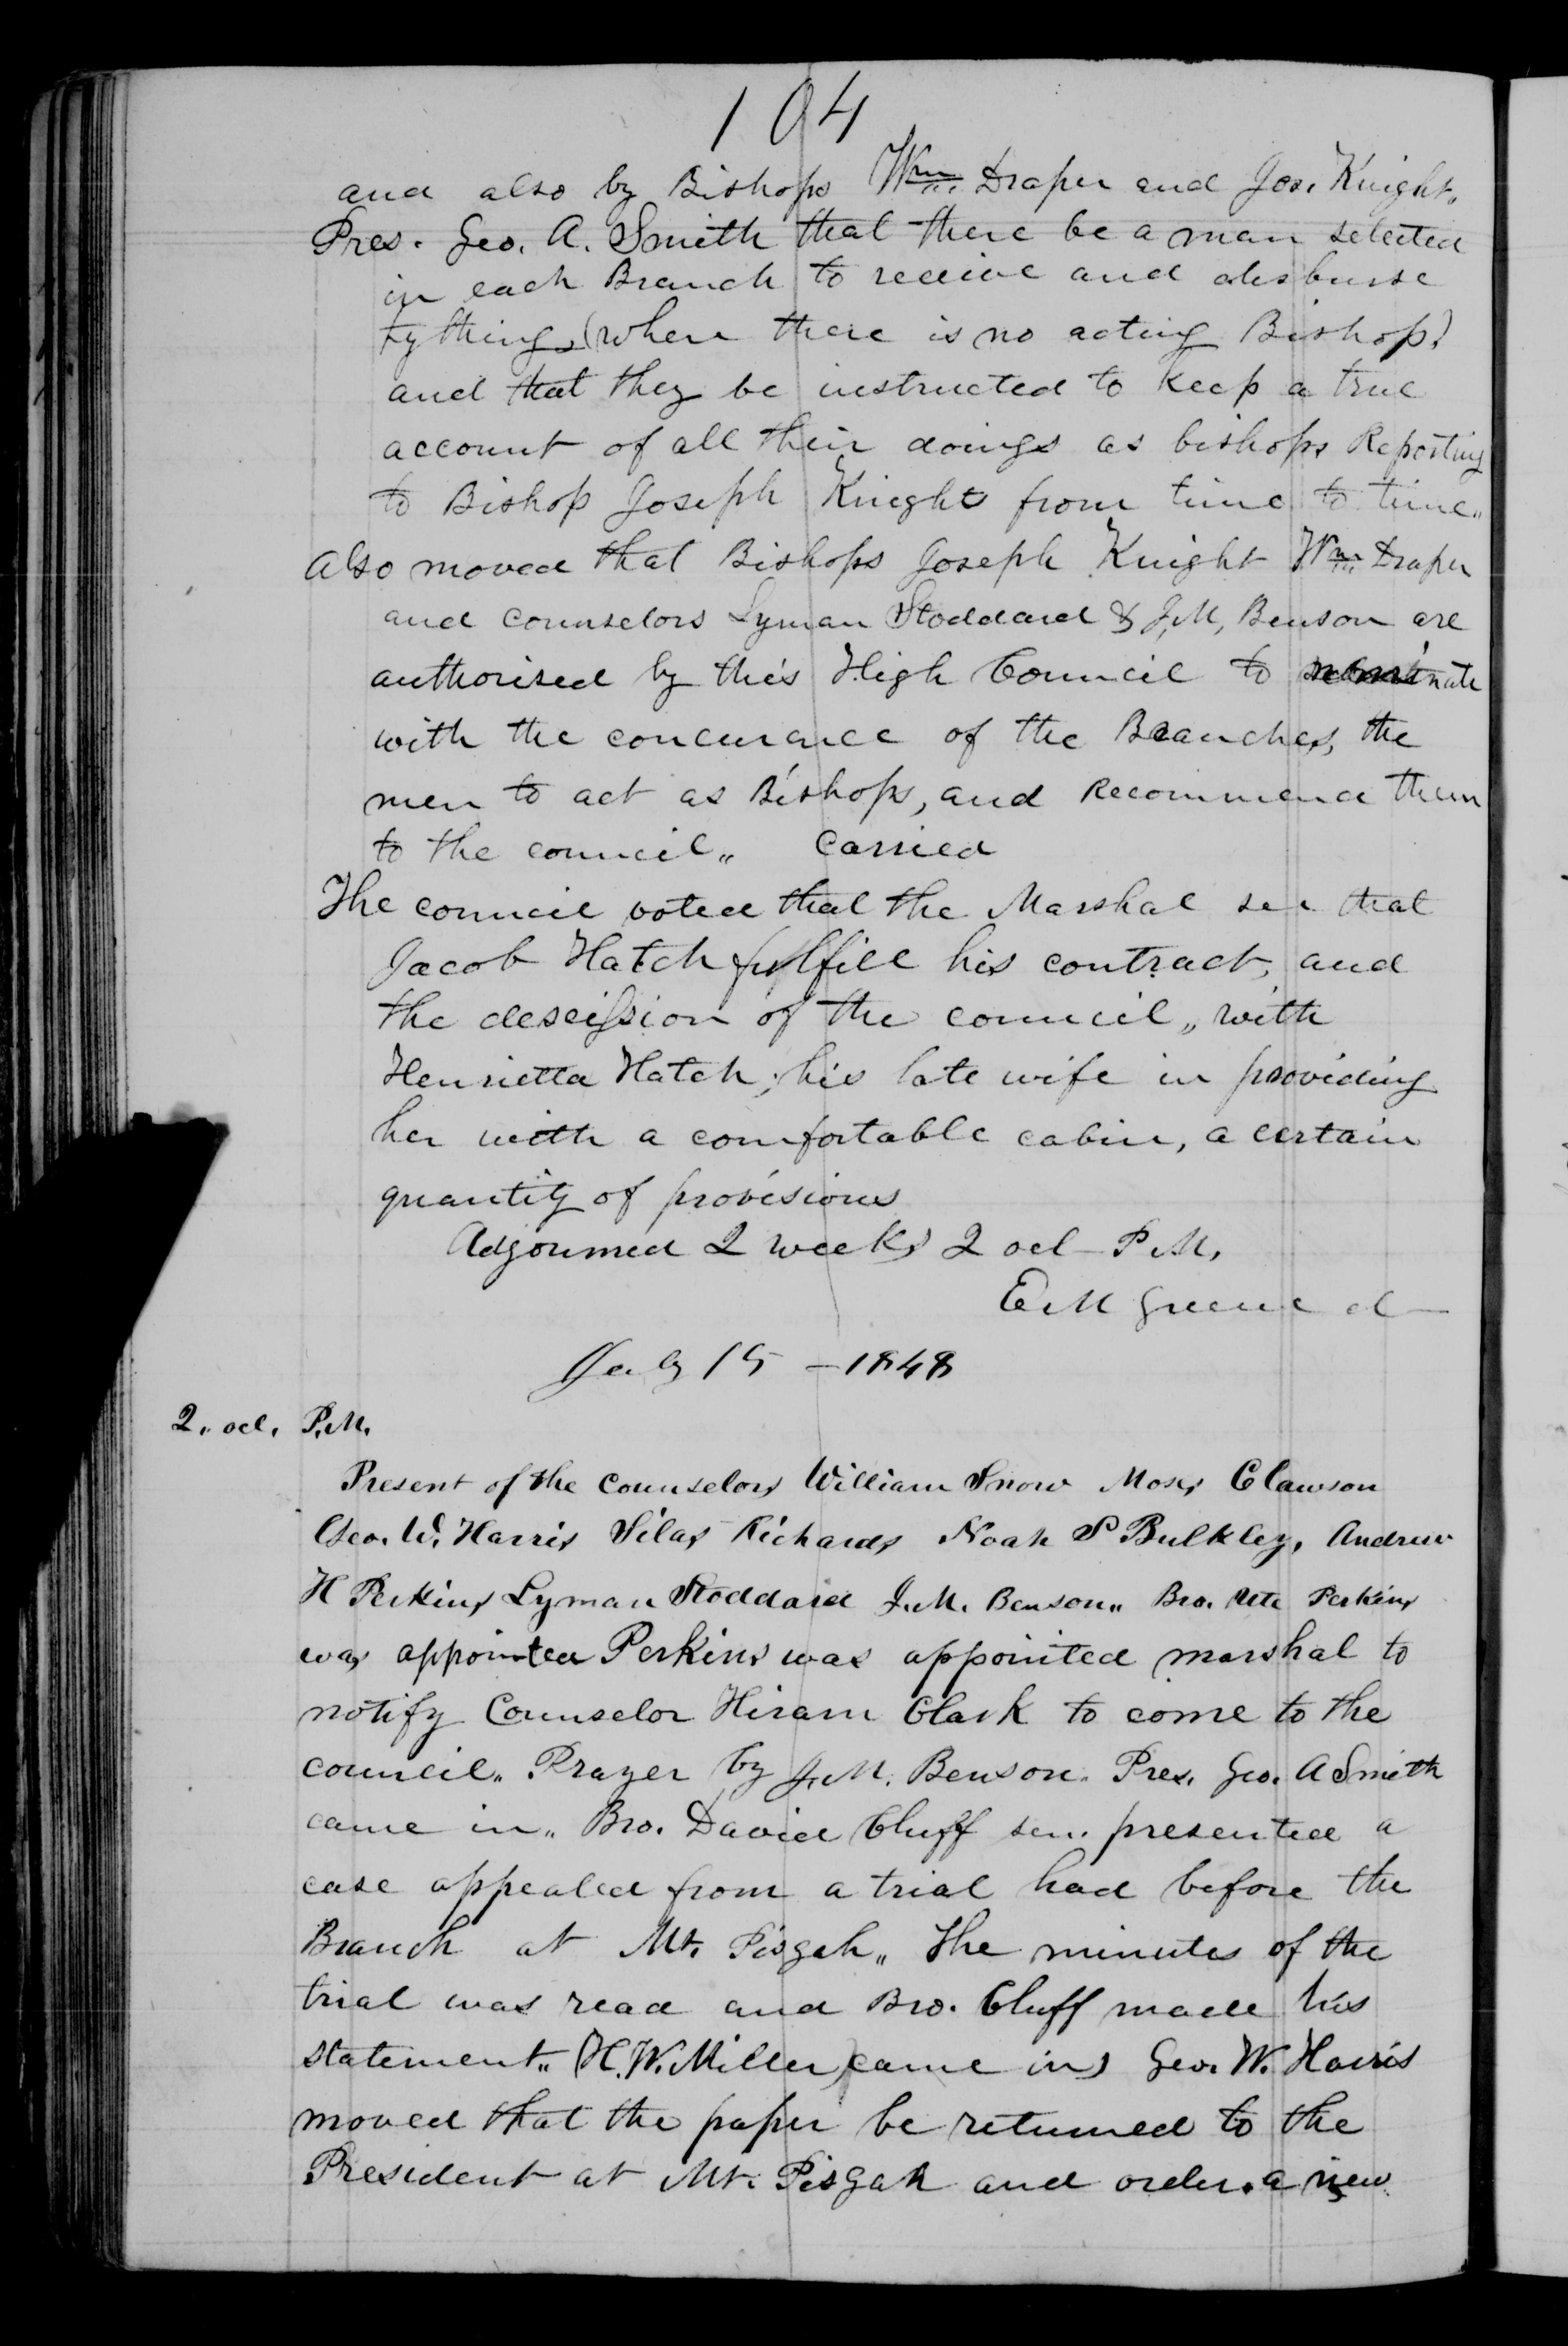 104
and also by Bishops Wm. Draper and Jos. Knight,
Pres. Geo. A. Smith that there be a man selected
in each Branch to receive and disburse
tything, (where there is no acting Bishop)
and that they be instructed to keep a true
account of all their doings as bishops Reporting
to Bishop Joseph Knight from time to time "
Also moved that Bishops Joseph Knight Wm. Draper
and Counselors Lyman Stoddard & J. M, Benson are
authorised by this High Council to nominate
with the concurance of the Branches, the
men to act as Bishops, and Recommend them
to the council " Carried
The council voted that the Marshal see that
Jacob Hatch fulfill his contract, and
the descission of the council " with
Henrietta Hatch, his late wife in providing
her with a comfortable cabin, a certain
quantity of provisions
Adjourned 2 weeks 2 ocl - P M,
E M Greene cl
July 15 - 1848
2. ocl. P.M.
Present of the Counselors William Snow Moses Clawson
Geo. W. Harris Silas Richards Noah S Bulkley, Andrew
H Perkins Lyman Stoddard J. M. Benson " Bro. Ute Perkins
was appointed Perkins was appointed marshal to
notify Counselor Hiram Clark to come to the
council " Prayer by J. M. Benson. Pres. Geo. A Smith
came in " Bro. David Cluff sen. presented a
case appealed from a trial had before the
Branch at Mt. Pisgah " The minutes of the
trial was read and Bro. Cluff made his
statement " (H. W. Miller came in) Geo. W. Harris
moved that the paper be returned to the
President at Mt. Pisgah and order a new